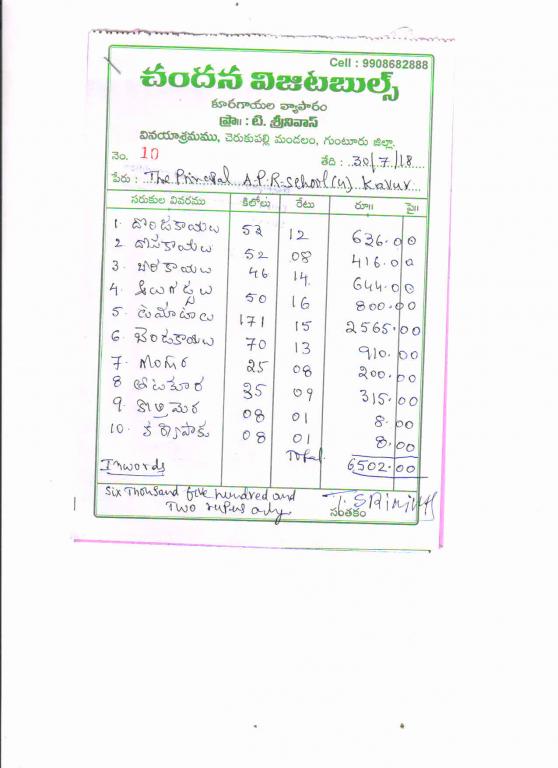 Cell : 9908682888
చందన విజిటబుల్స్
కూరగాయల వ్యాపారం
ప్రొ॥ : టి. శ్రీనివాస్
వినయాశ్రమము, చెరుకుపల్లి మండలం, గుంటూరు జిల్లా.
నెం. 10 తేది : 30/7/18
పేరు : The Principal A.P.R-School(U) Kavur
సరుకుల వివరము కిలోలు రేటు రూ॥ పై॥
1. దొండకాయలు 53 12 636.00
2 దోసకాయలు 52 08 416.00
3. బీరకాయలు 46 14 644.00
4. ఆలుగడ్డలు 50 16 800.00
5. టమోటాలు 171 15 2565.00
6. బెండకాయలు 70 13 910.00
7. 25 08 200.00
8 తోటకూర 35 09 315.00
9. కొత్తిమెర 08 01 8.00
10. కర్వేపాకు 08 01 8.00
Total 6502.00
Inwords
Six Thousand five hundred and
Two rupes only
T. SRINIVAS
సంతకం